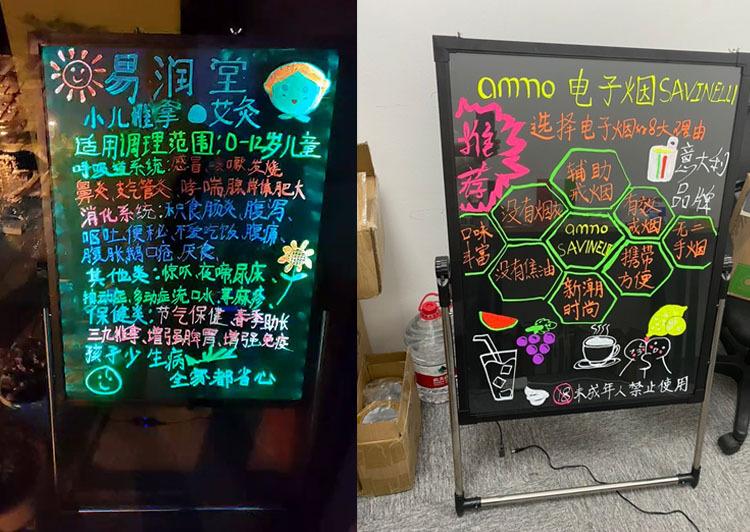 易润堂
小儿推拿 艾灸
适用调理范围:0-12岁儿童
呼吸道系统:感冒、咳嗽、发烧
鼻炎、支气管炎、哮喘、腺样体肥大
消化系统:积食、肠炎、腹泻、
呕吐、便秘、不爱吃饭、腹痛、
腹胀、鹅口疮、厌食、
其他类:惊吓、夜啼、尿床、
抽动症、多动症、流口水、荨麻疹、
保健类:节气保健、春季助长
三九推拿、增强脾胃、增强免疫
孩子少生病
全家都省心
ammo 电子烟 SAVINELLI
推荐
选择电子烟的8大理由
意大利
品牌
辅助
戒烟
没有烟
有效
戒烟
口味
丰富
ammo
SAVINELLI
无二
手烟
没有焦油
携带
方便
新潮
时尚
18 未成年人禁止使用